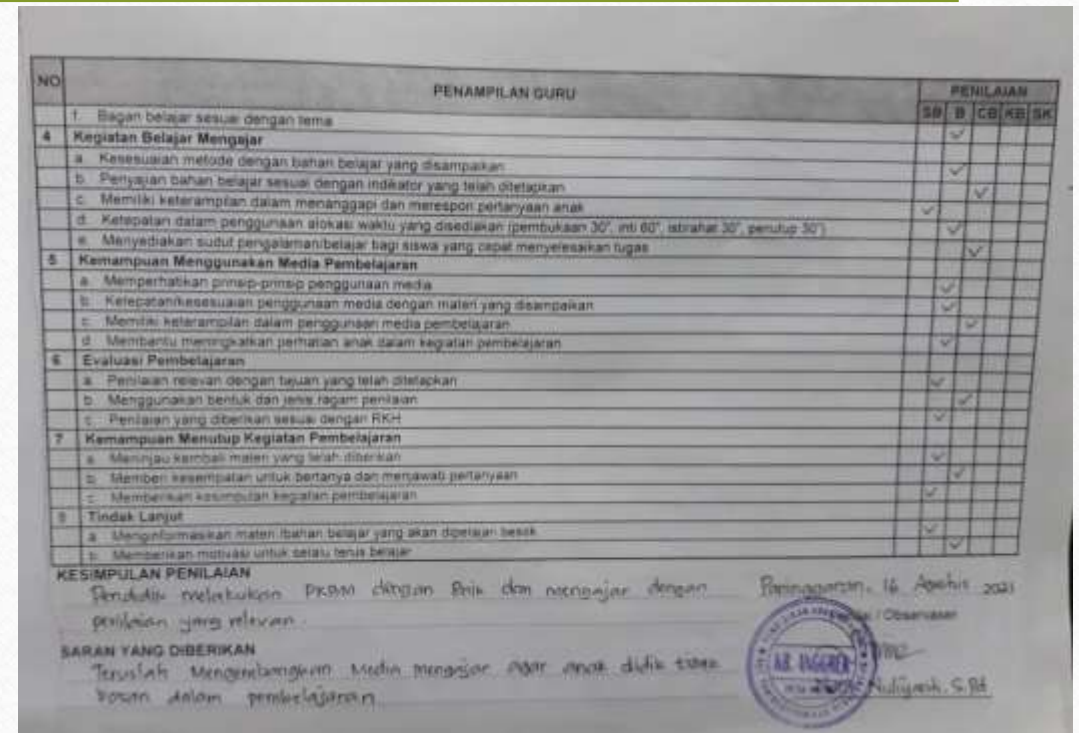 NO PENAMPILAN GURU PENILAIAN
SB B CB KB SK
f. Bagan belajar sesuai dengan tema
4 Kegiatan Belajar Mengajar
a. Kesesuaian metode dengan bahan belajar yang disampaikan
b. Penyajian bahan belajar sesuai dengan indikator yang telah ditetapkan
c. Memiliki keterampilan dalam menanggapi dan merespon pertanyaan anak
d. Ketepatan dalam penggunaan alokasi waktu yang disediakan (pembukaan 30", inti 60", istirahat 30", penutup 30")
e. Menyediakan sudut pengalaman/belajar bagi siswa yang cepat menyelesaikan tugas
5 Kemampuan Menggunakan Media Pembelajaran
a. Memperhatikan prinsip-prinsip penggunaan media
b. Ketepatan/kesesuaian penggunaan media dengan materi yang disampaikan
c. Memiliki keterampilan dalam penggunaan media pembelajaran
d. Membantu meningkatkan perhatian anak dalam kegiatan pembelajaran
6 Evaluasi Pembelajaran
a. Penilaian relevan dengan tujuan yang telah ditetapkan
b. Menggunakan bentuk dan jenis ragam penilaian
c. Penilaian yang diberikan sesuai dengan RKH
7 Kemampuan Menutup Kegiatan Pembelajaran
a. Meninjau kembali materi yang telah diberikan
b. Memberi kesempatan untuk bertanya dan menjawab pertanyaan
c. Memberikan kesimpulan kegiatan pembelajaran
8 Tindak Lanjut
a. Menginformasikan materi /bahan belajar yang akan dipelajari besok
b. Memberikan motivasi untuk selalu terus belajar
KESIMPULAN PENILAIAN
Pendidik melakukan dengan Baik dan mengajar dengan
penilaian yang relevan.
Paringgonan, 16 Agustus 2021
/ Observaser
SARAN YANG DIBERIKAN
Teruslah Mengembangkan Media mengajar agar anak didik tidak
bosan dalam pembelajaran
KB.
S.Pd